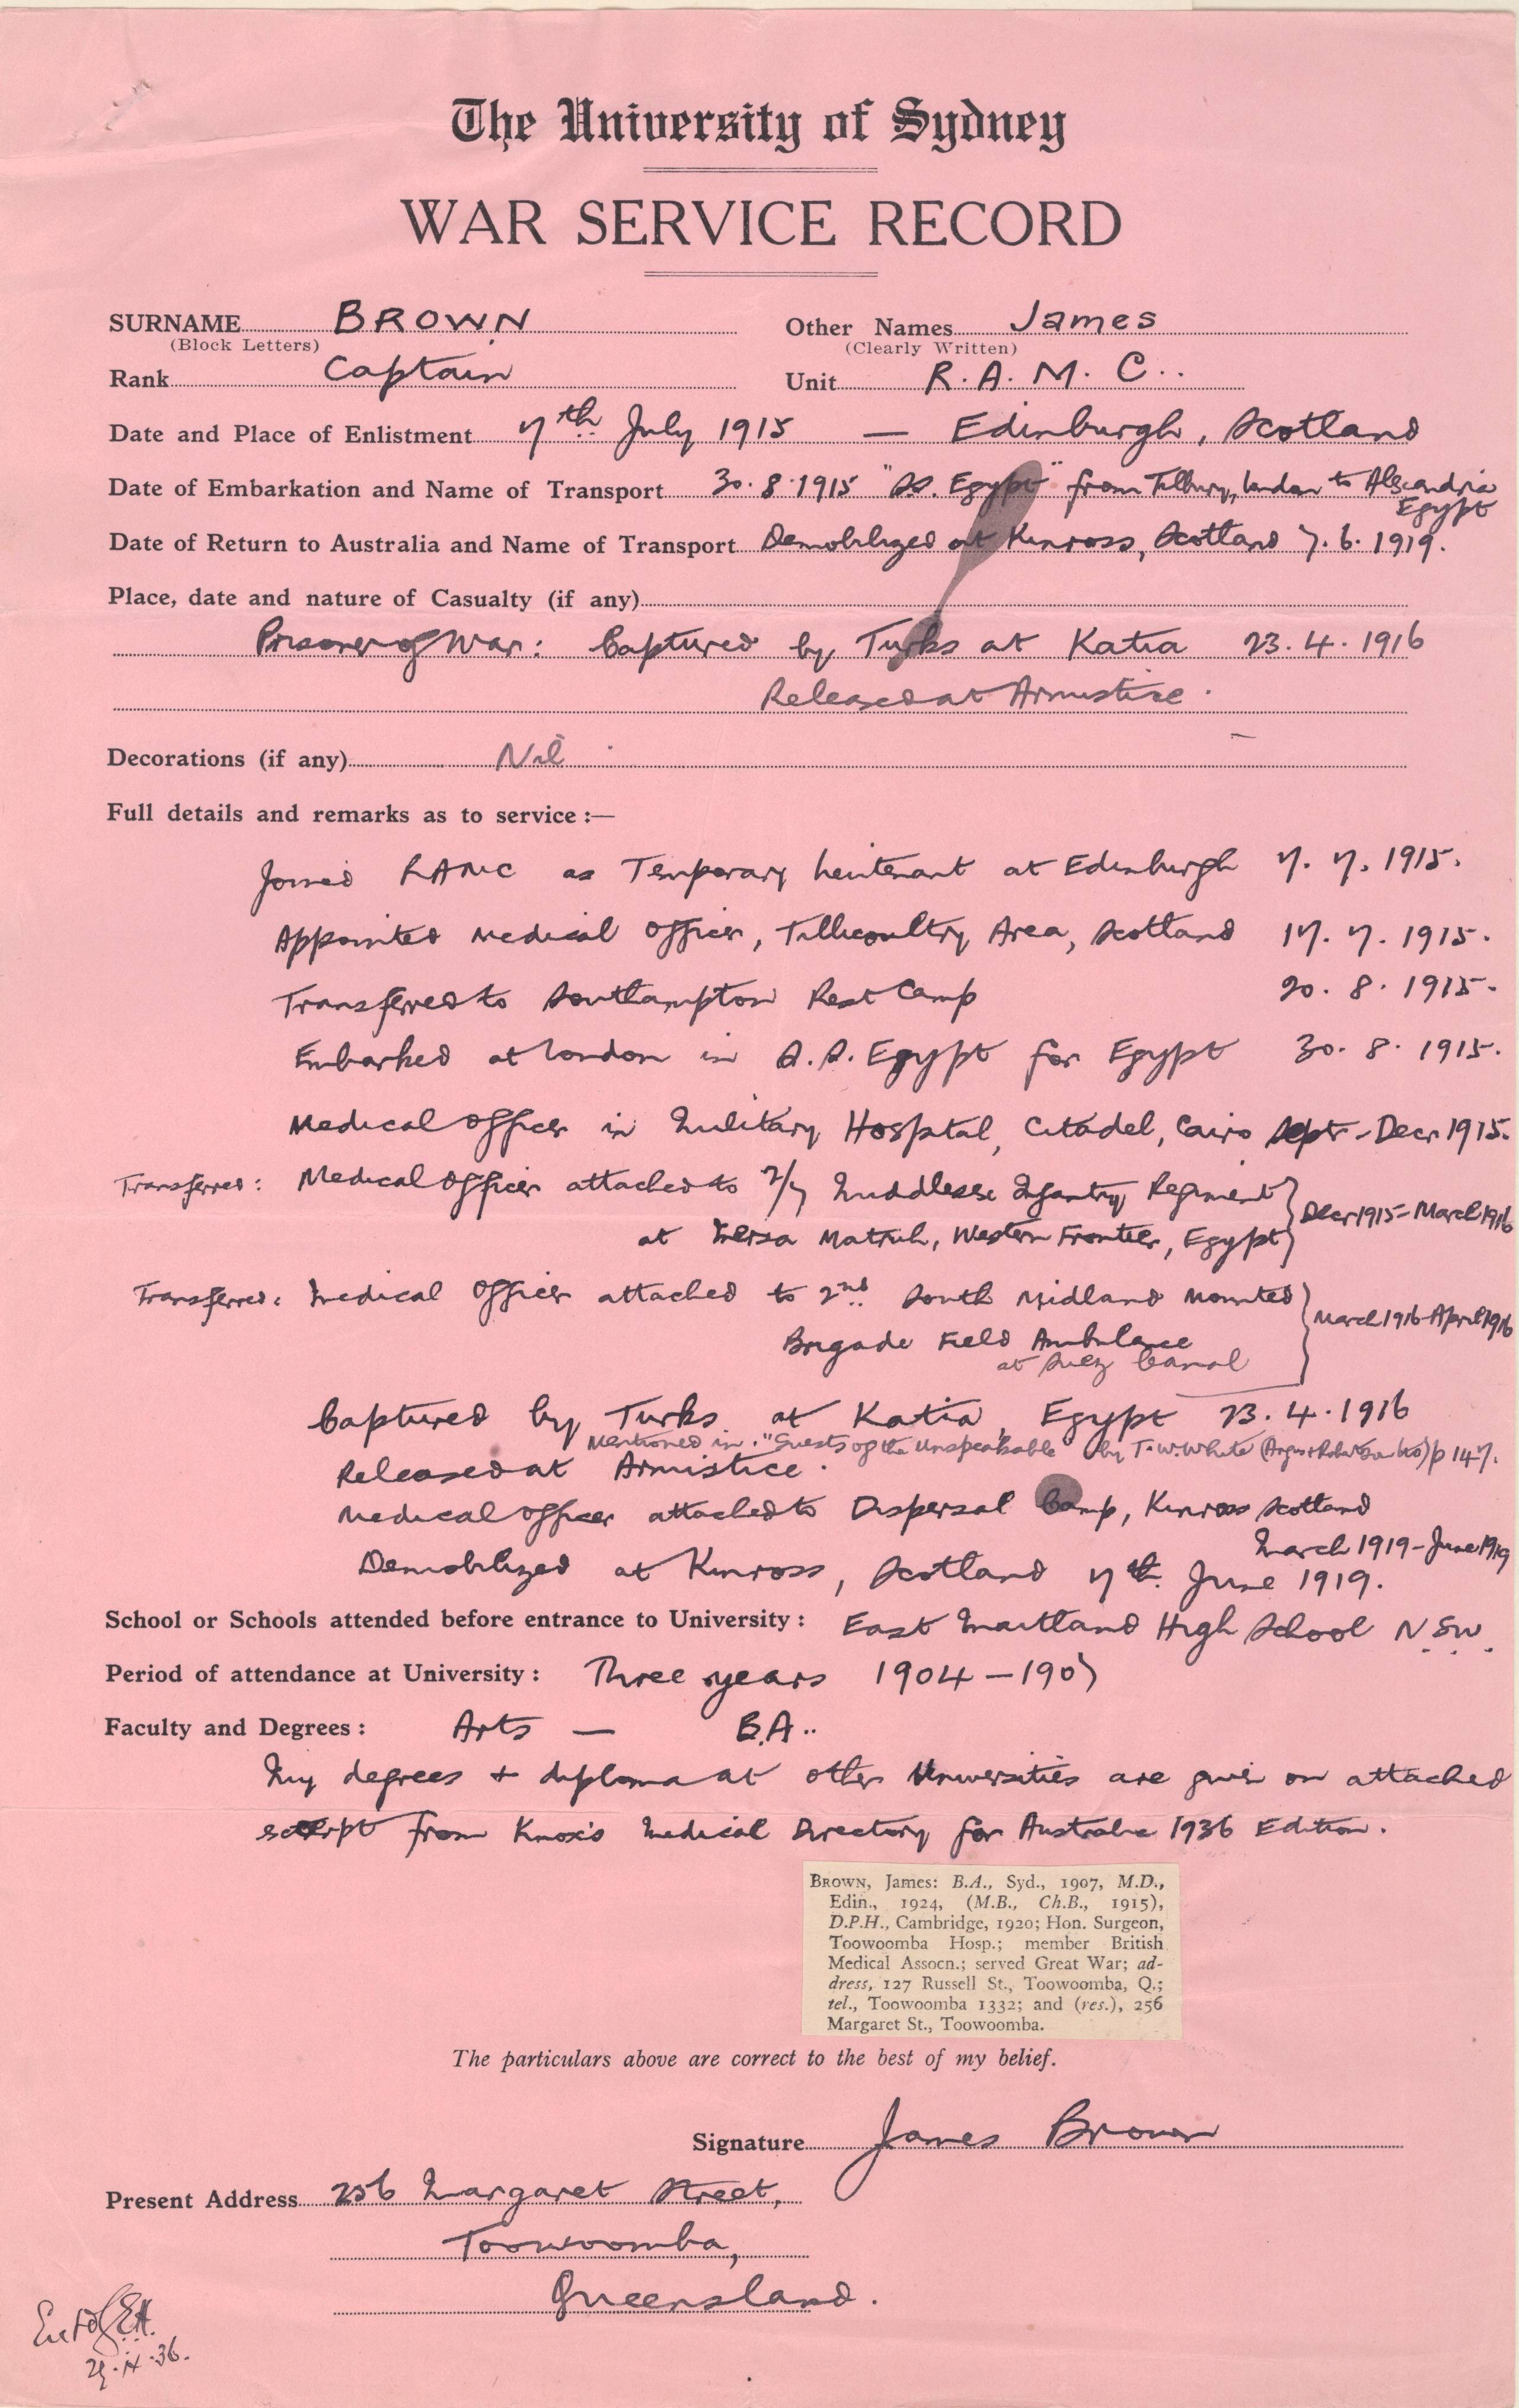 The University of Sydney
WAR SERVICE RECORD
SURNAME BROWN Other Names James
(Block Letters) (Clearly Written)
Rank Captain Unit R.A.M.C..
Date and Place of Enlistment 7th July 1915 — Edinburgh, Scotland
Date of Embarkation and Name of Transport 30.8.1915 "SS. Egypt" from Tilbury, London to Alexandria
Egypt
Date of Return to Australia and Name of Transport Demobilized at Kinross, Scotland 7.6.1919.
Place, date and nature of Casualty (if any)
Prisoner of War: Captured by Turks at Katia 23.4.1916
Released at Armistice.
Decorations (if any) Nil.
Full details and remarks as to service :—
Joined RAMC as Temporary Lieutenant at Edinburgh 7.7.1915.
Appointed Medical Officer, Tillicoultry Area, Scotland 17.7.1915.
Transferred to Southampton Rest Camp 20.8.1915.
Embarked at London in S.S. Egypt for Egypt 30.8.1915.
Medical Officer in Military Hospital, Citadel, Cairo Sept-Decr 1915.
Transferred: Medical Officer attached to 2/7 Middlesex Infantry Regiment
at Mersa Matruh, Western Frontier, Egypt } Decr 1915-March 1916
Transferred: Medical Officer attached to 2nd South Midland Mounted
Brigade Field Ambulance } March 1916-April 1916
at Suez Canal
Captured by Turks at Katia, Egypt 23.4.1916
Mentioned in "Guests of the Unspeakable by T.W. White (Angus & Robertson Ltd) p 147.
Released at Armistice.
Medical Officer attached to Dispersal Camp, Kinross Scotland
March 1919-June 1919
Demobilized at Kinross, Scotland 7th June 1919.
School or Schools attended before entrance to University : East Maitland High School N.S.W.
Period of attendance at University : Three years 1904-1907
Faculty and Degrees : Arts — B.A..
My degrees + diploma at other Universities are given on attached
excerpt from Knox's Medical Directory for Australia 1936 Edition.
BROWN, James: B.A., Syd., 1907, M.D.,
Edin., 1924, (M.B., Ch.B., 1915),
D.P.H., Cambridge, 1920; Hon. Surgeon,
Toowoomba Hosp.; member British
Medical Assocn.; served Great War; ad-
dress, 127 Russell St., Toowoomba, Q.;
tel., Toowoomba 1332; and (res.), 256
Margaret St., Toowoomba.
The particulars above are correct to the best of my belief.
Signature James Brown
Present Address 256 Margaret Street,
Toowoomba,
Queensland.